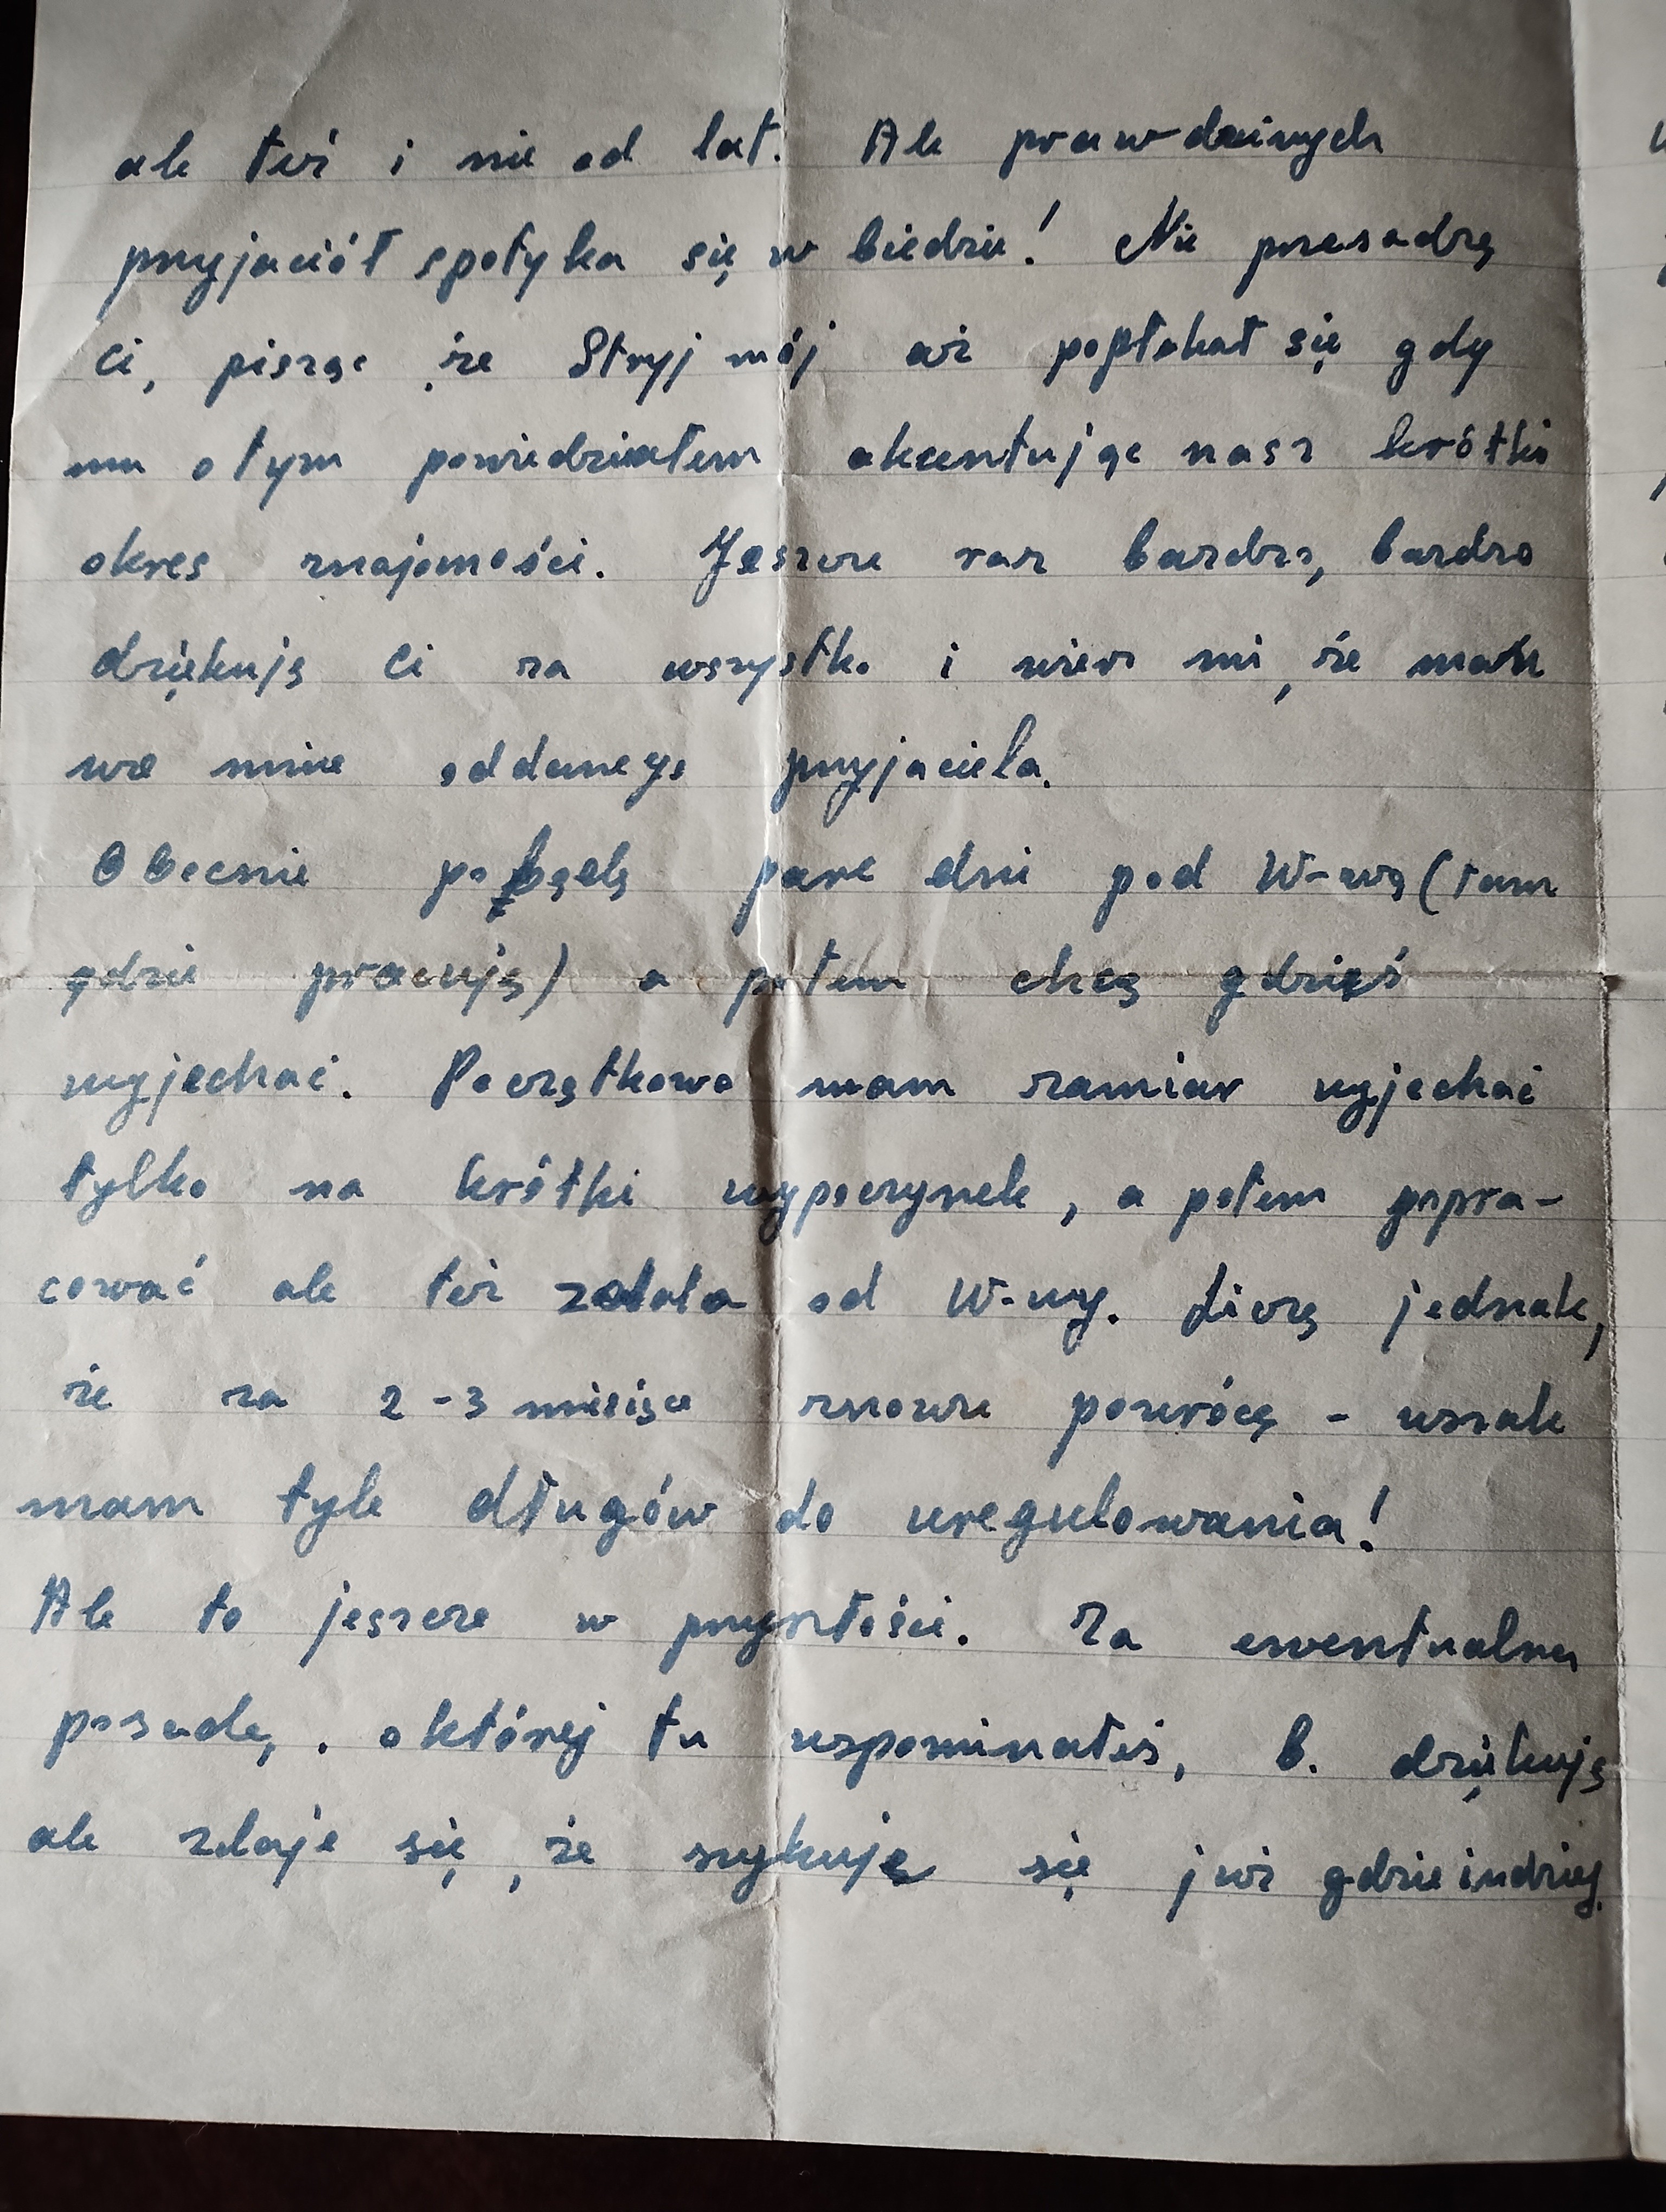 ale też i nie od lat. Ale prawdziwych
przyjaciół spotyka się w biedzie! Nie przesadzę
Ci, pisząc że Stryj mój aż popłakał się gdy
mu o tym powiedziałem akcentując nasz krótki
okres znajomości. Jeszcze raz bardzo, bardzo
dziękuję Ci za wszystko i wierz mi, że masz
we mnie oddanego przyjaciela.
Obecnie pobędę parę dni pod W-wą (tam
gdzie pracuję) a potem chcę gdzieś
wyjechać. Początkowo mam zamiar wyjechać
tylko na krótki wypoczynek, a potem popra-
cować ale też zdala od W-wy. Liczę jednak,
że za 2-3 miesiące znowu powrócę - wszak
mam tyle długów do uregulowania!
Ale to jeszcze w przyszłości. Za ewentualną
posadę, o której tu wspominałeś, b. dziękuję
ale zdaje się, że szykuje się już gdzieindziej.